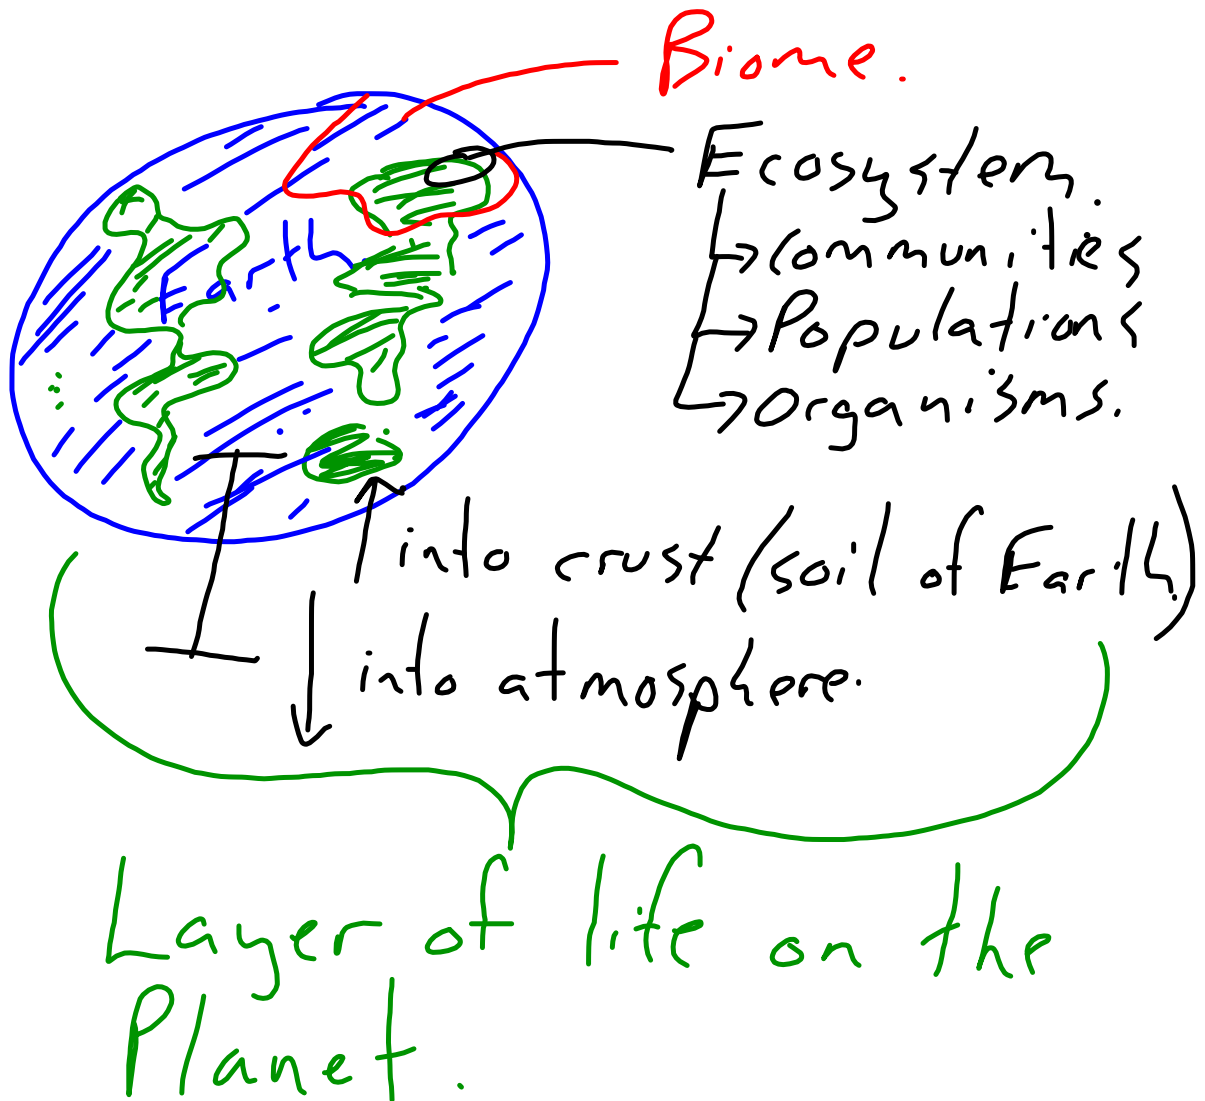 Biome.
Ecosystem.
Communities
Earth
Populations
Organisms.
into crust (soil of Earth.)
into atmosphere.
Layer of life on the
Planet.